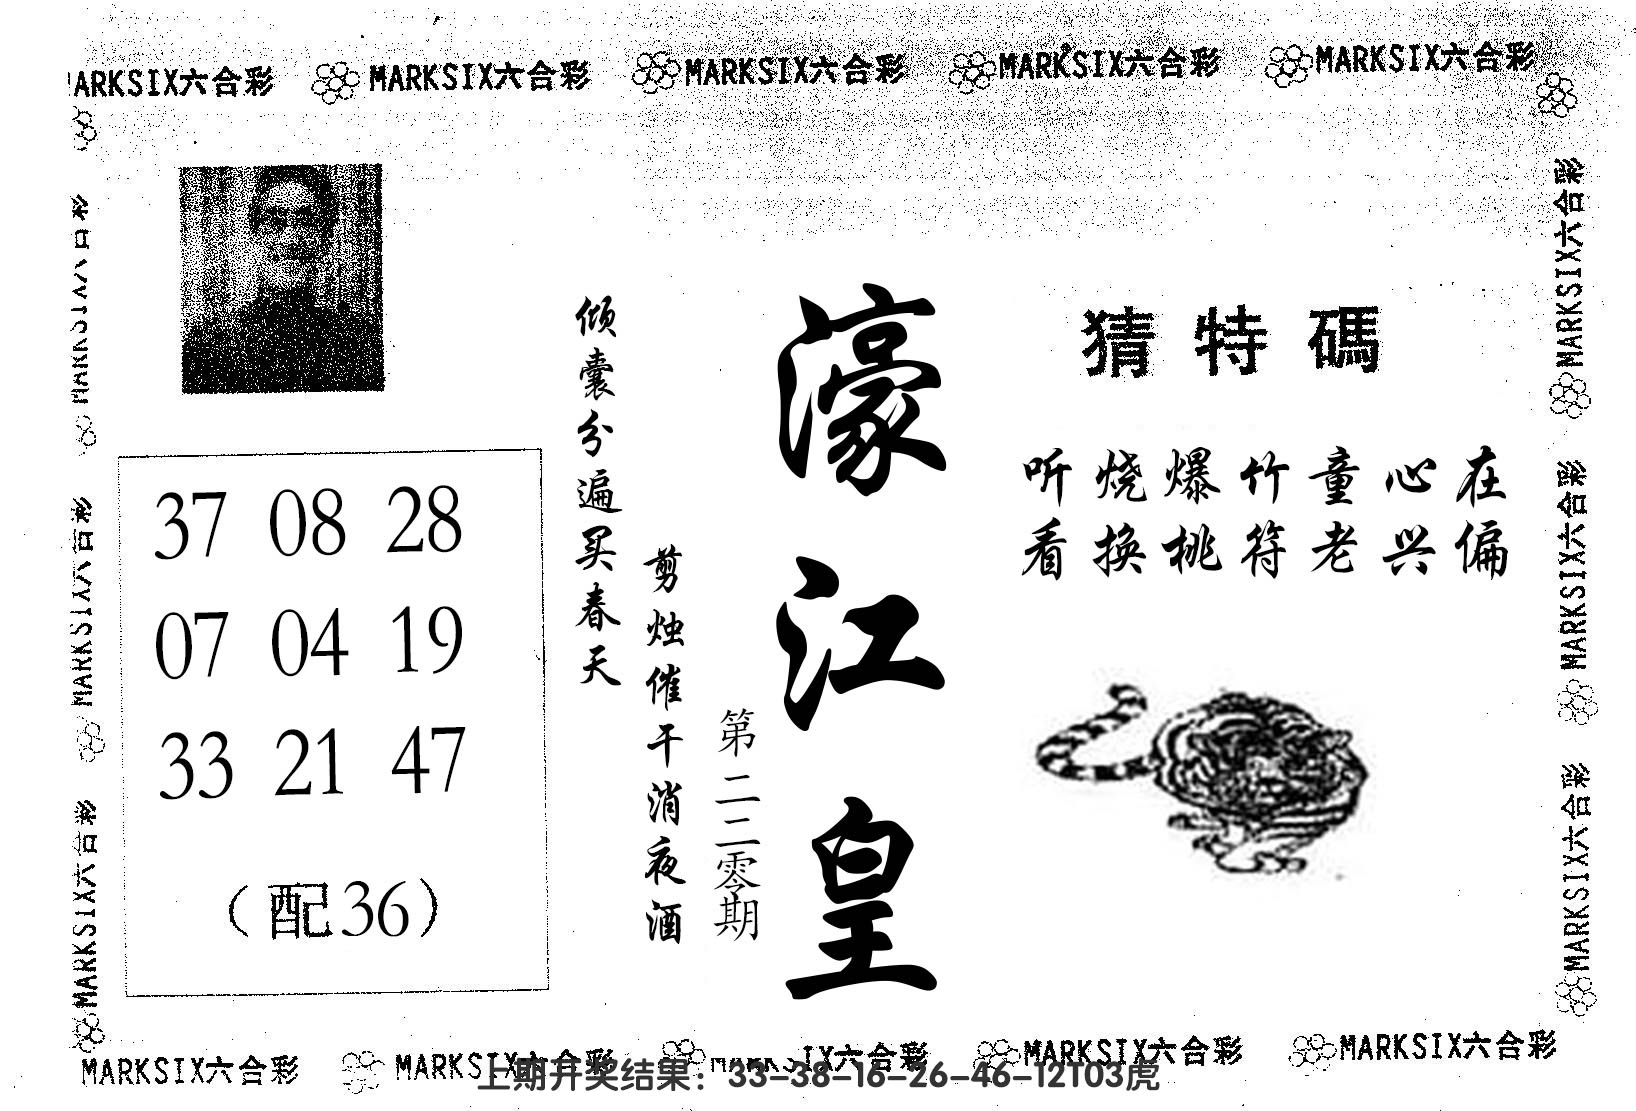 MARKSIX六合彩 MARKSIX六合彩 MARKSIX六合彩 MARKSIX六合彩 MARKSIX六合彩
MARKSIX六合彩
MARKSIX六合彩
MARKSIX六合彩
37 08 28
07 04 19
33 21 47
（配36）
倾囊分遍买春天
剪烛催干消夜酒
第二二零期
濠江皇
猜特碼
听烧爆竹童心在
看换桃符老兴偏
MARKSIX六合彩
MARKSIX六合彩
MARKSIX六合彩
MARKSIX六合彩 MARKSIX六合彩 MARKSIX六合彩 MARKSIX六合彩 MARKSIX六合彩
上期开奖结果：33-38-16-26-46-12T03虎